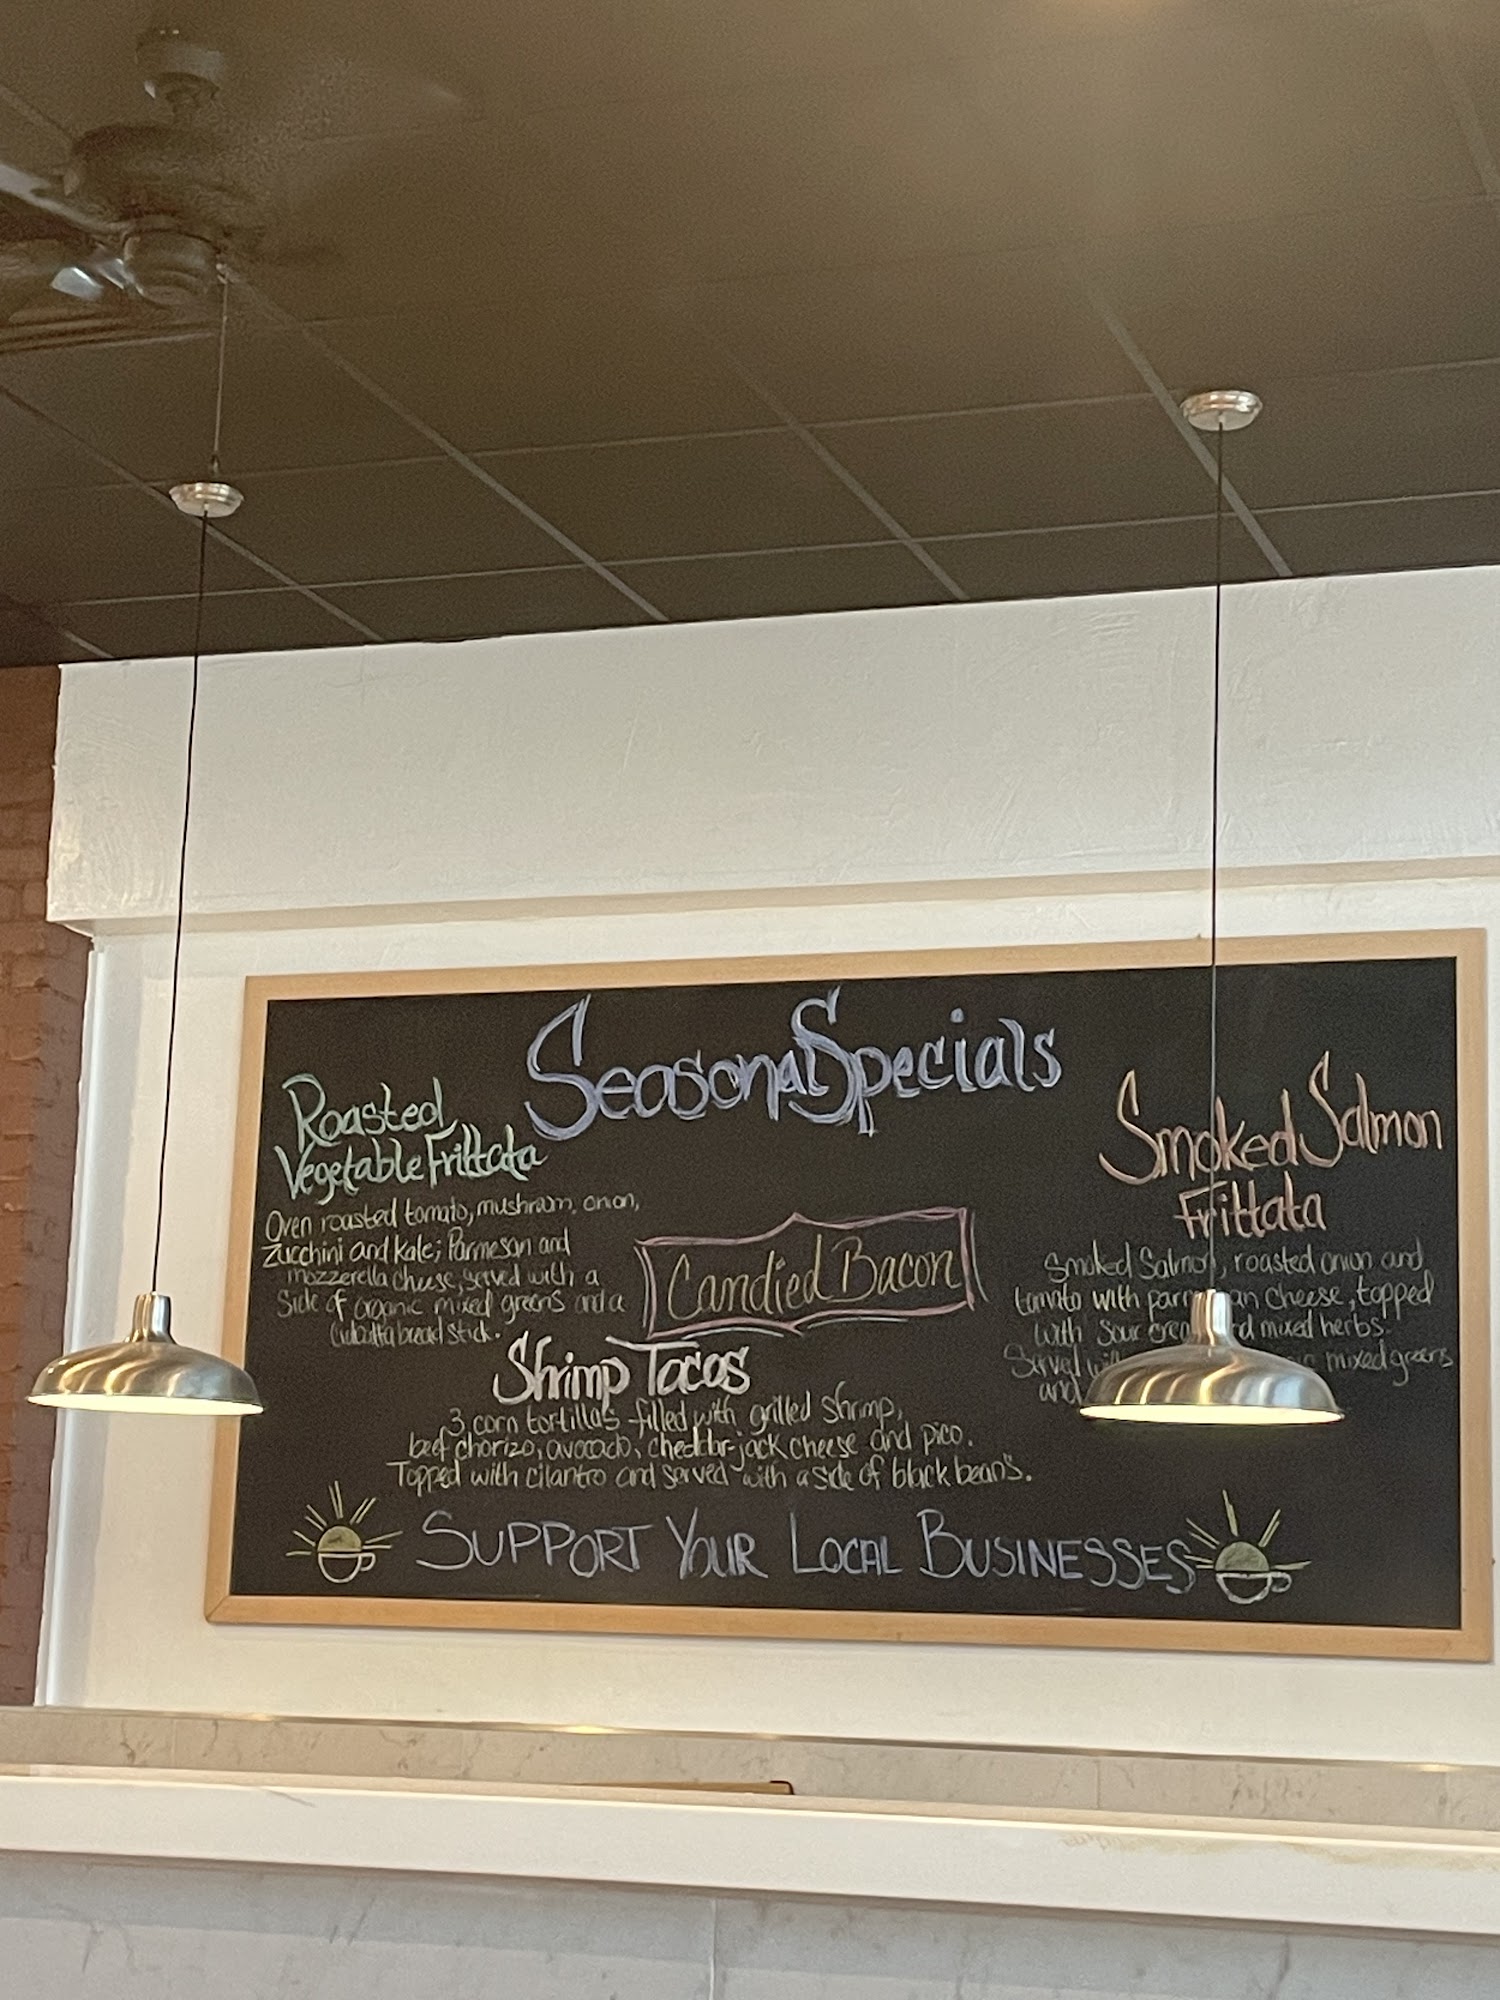 Seasonal Specials
Roasted
Vegetable Frittata
Oven roasted tomato, mushroom, onion,
Zucchini and Kale; Parmesan and
mozzerella cheese, served with a
Side of organic mixed greens and a
bread stick.
Candied Bacon
Shrimp Tacos
3 corn tortillas filled with grilled shrimp,
beef chorizo, avocado, cheddar-jack cheese and pico.
Topped with cilantro and served with a side of black beans.
Smoked Salmon
Frittata
Smoked Salmon, roasted onion and
tomato with parmesan cheese, topped
with sour cream and mixed herbs.
Served mixed greens
and
SUPPORT YOUR LOCAL BUSINESSES